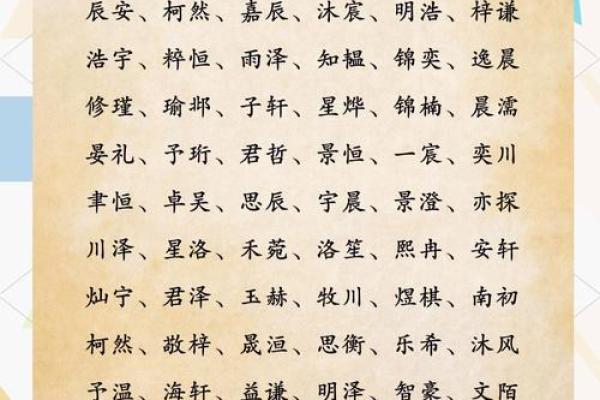 辰安、柯然、嘉辰、沐宸、明浩、梓谦
浩宇、粹恒、雨泽、知韫、锦奕、逸晨
修瑾、瑜邶、子轩、星烨、锦楠、晨濡
晏礼、予珩、君哲、景恒、一宸、奕川
聿恒、卓吴、思辰、宇晨、景澄、亦探
川泽、星洛、禾菀、洛笙、熙冉、安轩
灿宁、君泽、玉赫、牧川、煜棋、南初
柯然、敬梓、晟洹、思衡、乐希、沐风
予温、海轩、益谦、明泽、智豪、文陌